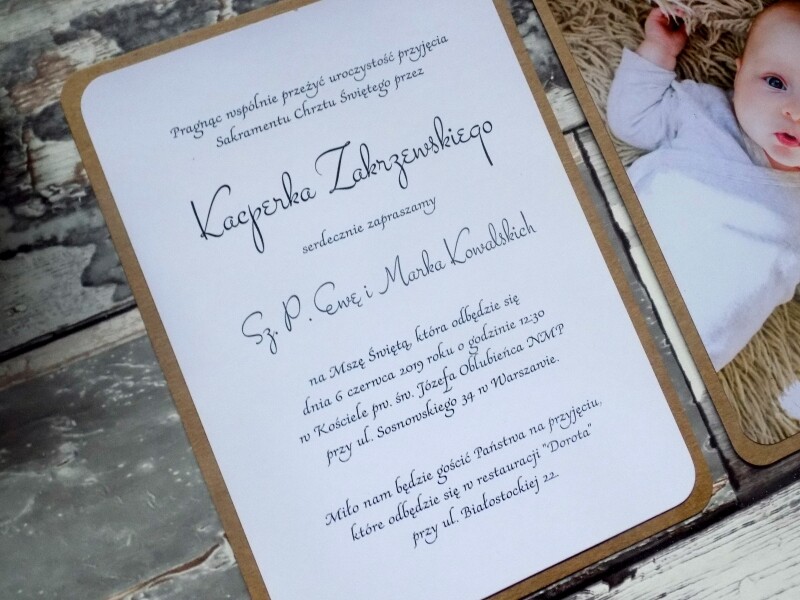 Pragnąc wspólnie przeżyć uroczystość przyjęcia
Sakramentu Chrztu Świętego przez
Kacperka Zakrzewskiego
serdecznie zapraszamy
Sz. P. Ewę i Marka Kowalskich
na Mszę Świętą, która odbędzie się
dnia 6 czerwca 2019 roku o godzinie 12:30
w Kościele pw. św. Józefa Oblubieńca NMP
przy ul. Sosnowskiego 34 w Warszawie.
Miło nam będzie gościć Państwa na przyjęciu,
które odbędzie się w restauracji "Dorota"
przy ul. Białostockiej 22.